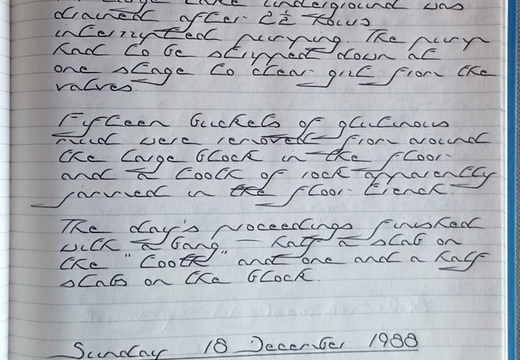 a large lake underground was
drained after 2½ hours
interrupted pumping. The pump
had to be stripped down at
one stage to clear grit from the
valves.
Fifteen buckets of glutinous
mud were removed from around
the large block in the floor
and a tooth of rock apparently
jammed in the floor trench.
The day's proceedings finished
with a bang – half a slab on
the "tooth" and one and a half
slabs on the block.
Sunday 18 December 1988